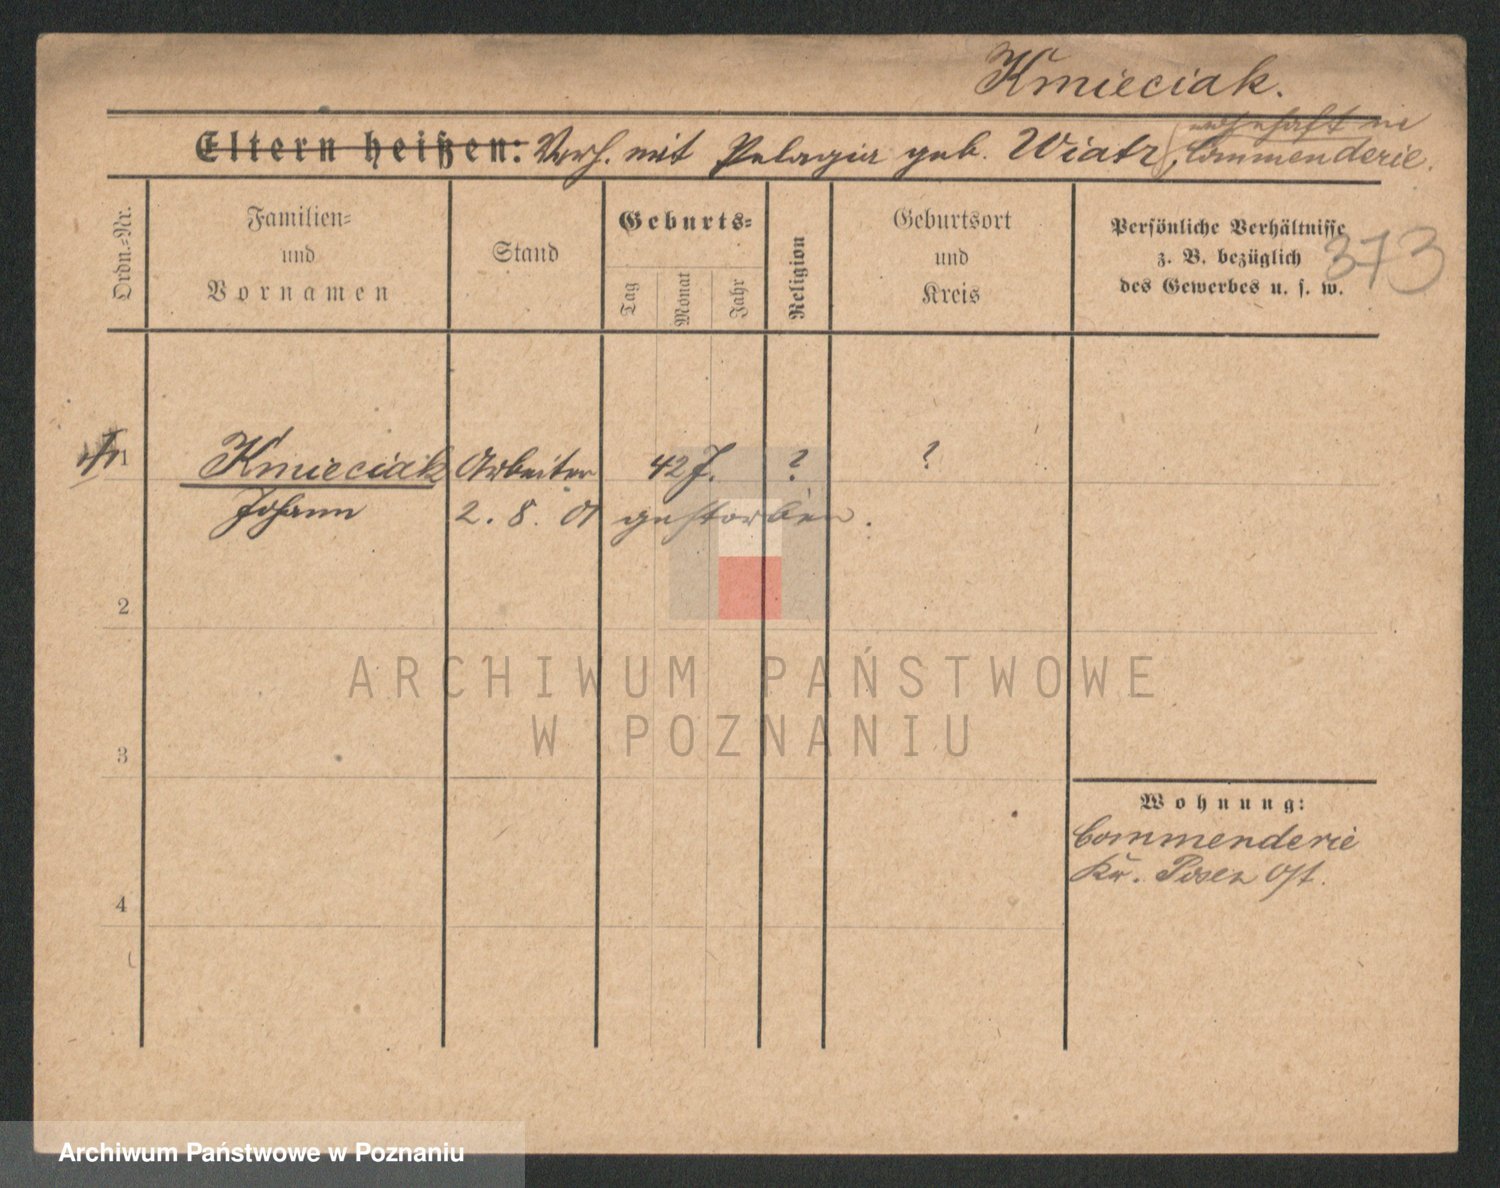 Kmieciak.
Eltern heißen: Verh. mit Pelagia geb. Wiatr, wohnhaft in
Commenderie.
Ordn.=Nr.
Familien=
und
Vornamen
Stand
Geburts=
Tag
Monat
Jahr
Religion
Geburtsort
und
Kreis
Persönliche Verhältnisse
z. B. bezüglich
des Gewerbes u. s. w.
373
1
Kmieciak Arbeiter 42 J. ? ?
Johann 2. 8. 01 gestorben.
2
3
4
Wohnung:
Commenderie
Kr. Posen Ost.
ARCHIWUM PAŃSTWOWE
W POZNANIU
Archiwum Państwowe w Poznaniu